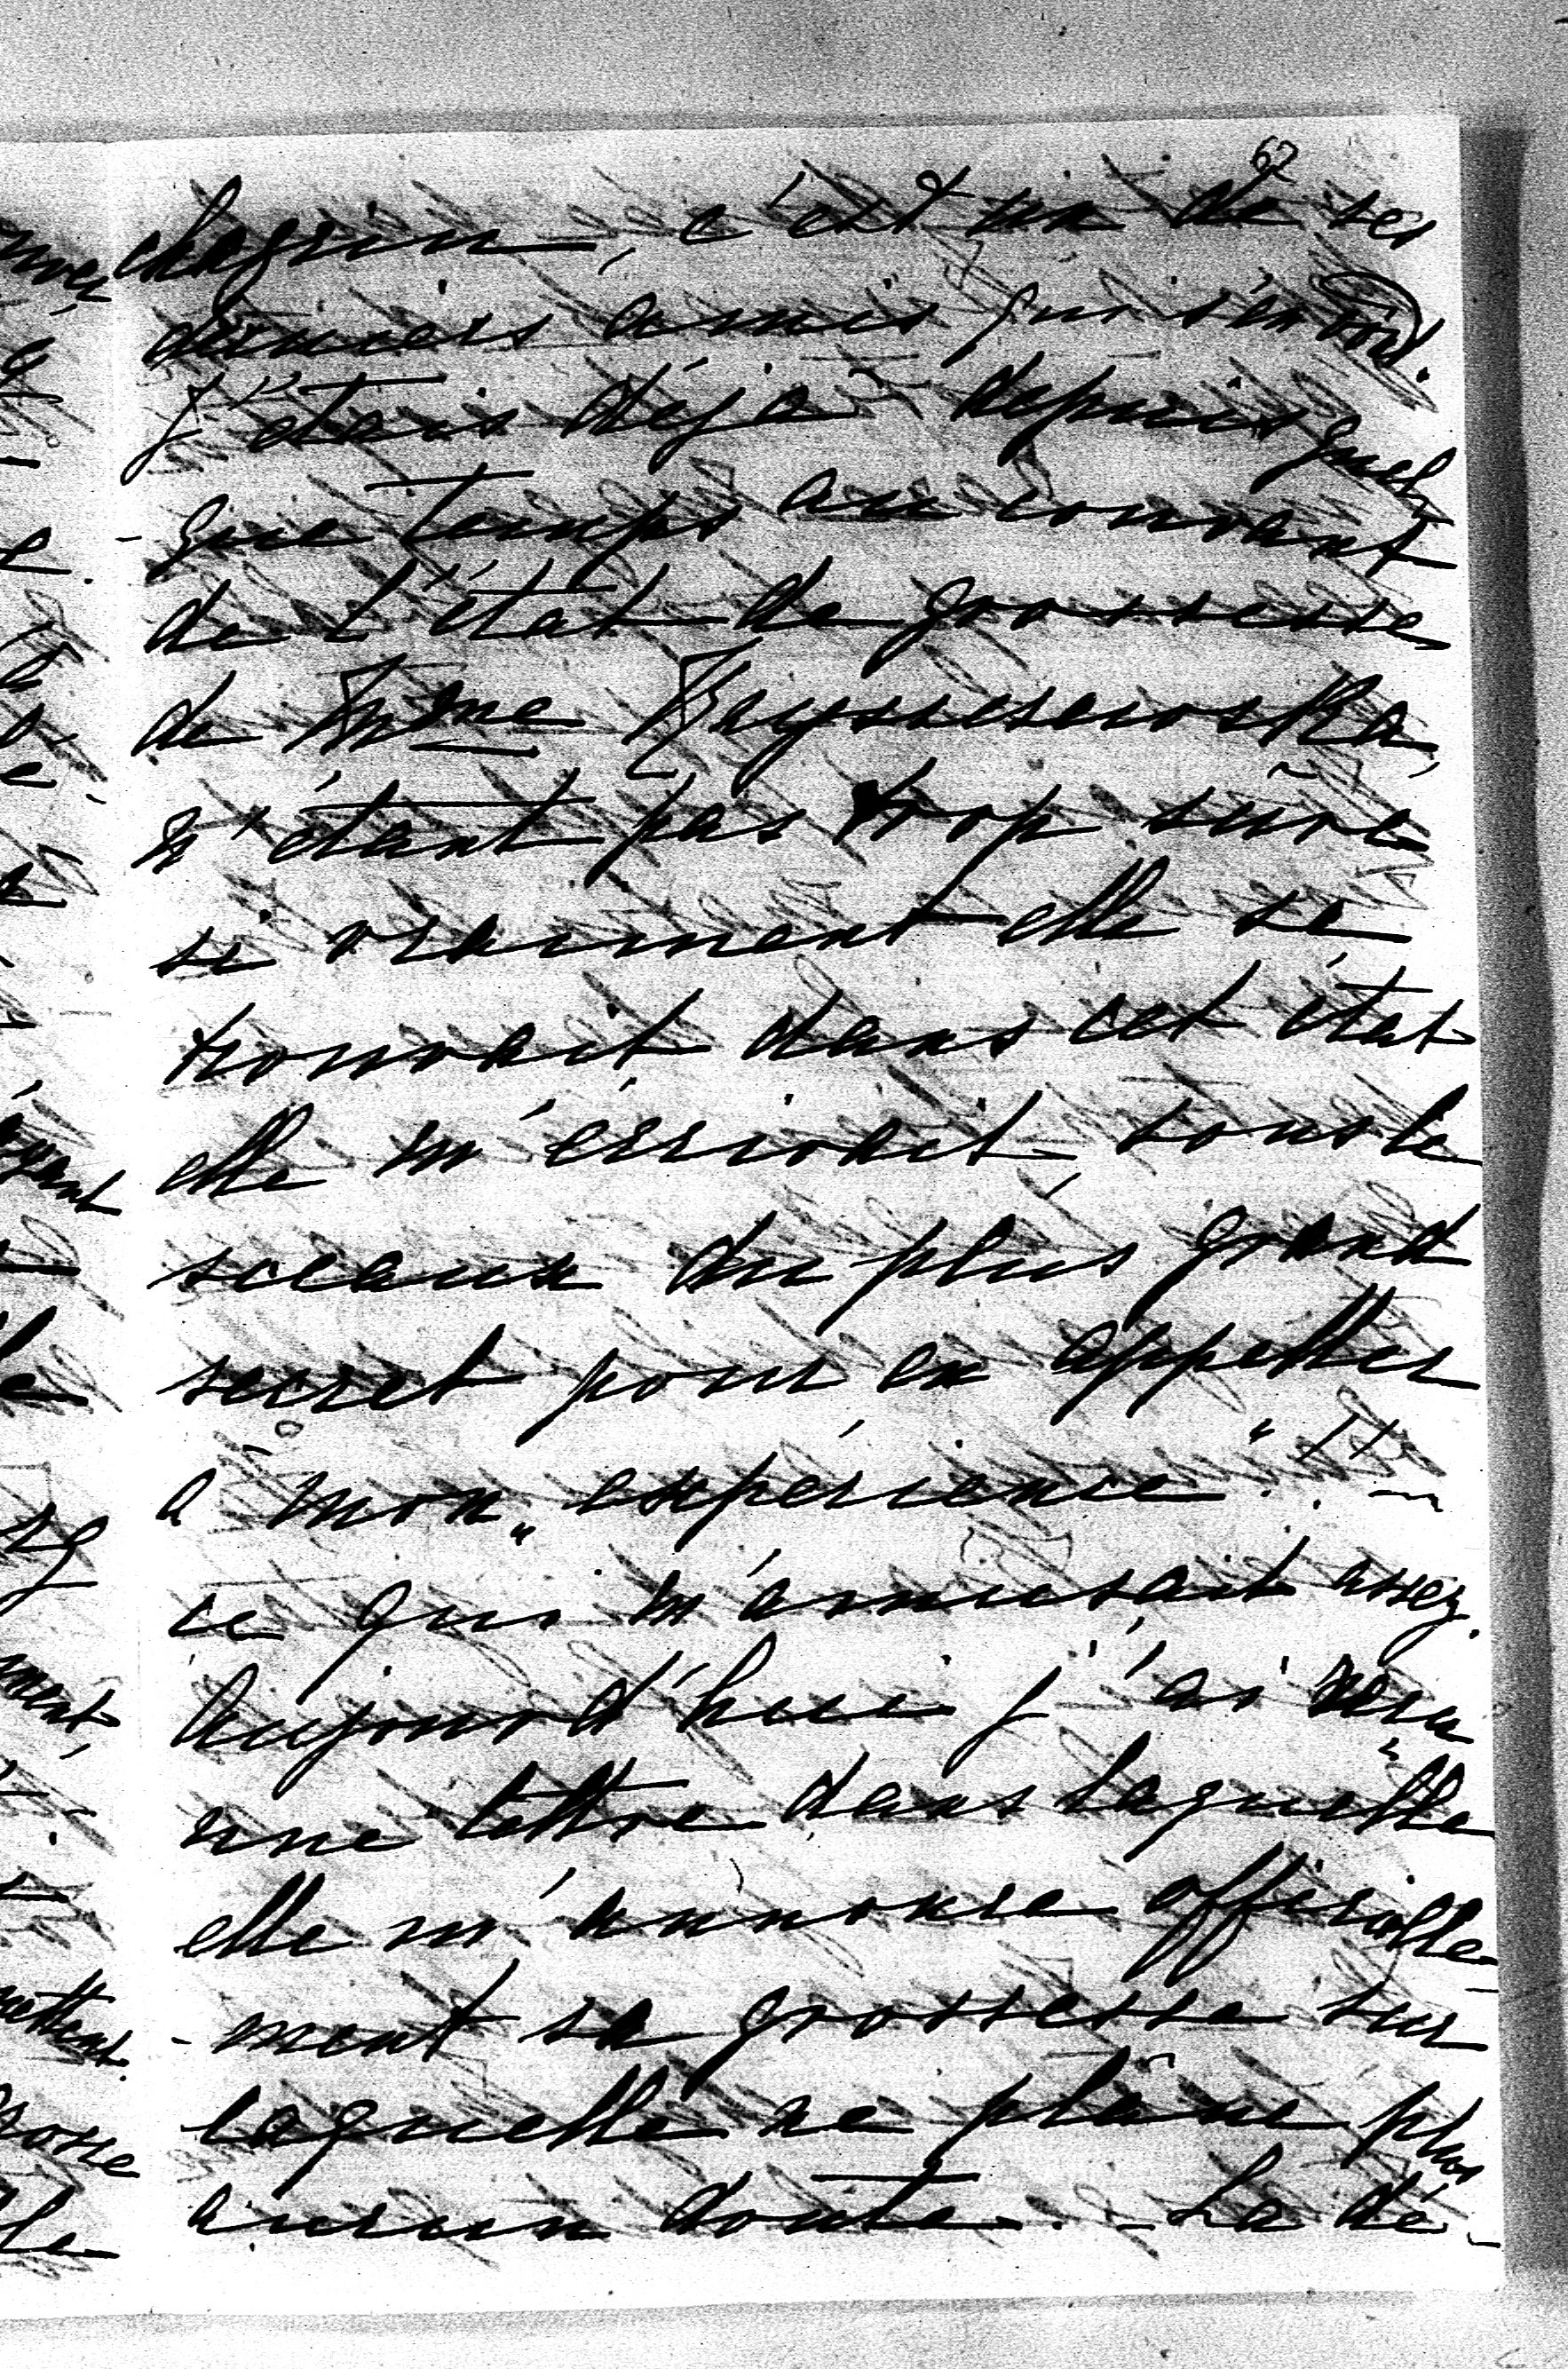 62
chagrin, c'est un de ses
derniers amis qui s'en va.
J'étais déjà depuis quel-
-que temps au courant
de l'état de grossesse
de Mme
n'étant pas trop sûre
si vraiment elle se
trouvait dans cet état
elle m'écrivait, sous le
sceaux du plus grand
secret pour en appeller
à mon „expérience"!!
ce qui m'amusait assez.
Aujourd'hui j'ai reçu
une lettre dans laquelle
elle m'annonce officielle-
-ment sa grossesse sur
laquelle ne plâne plus
aucun doute. – La dé-